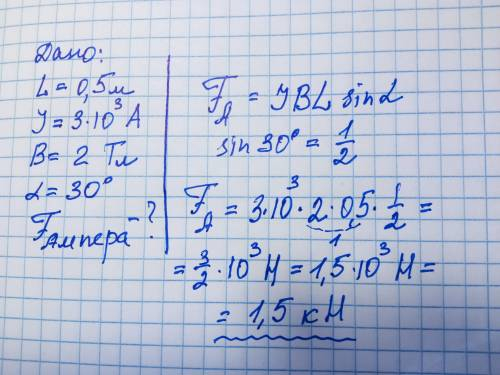 Дано:
L = 0,5 м
I = 3·10³ А
B = 2 Тл
α = 30°
Fампера - ?
F_A = IBL sinα
sin 30° = 1/2
F_A = 3·10³·2·0,5·1/2 =
1
= 3/2·10³ Н = 1,5·10³ Н =
= 1,5 кН